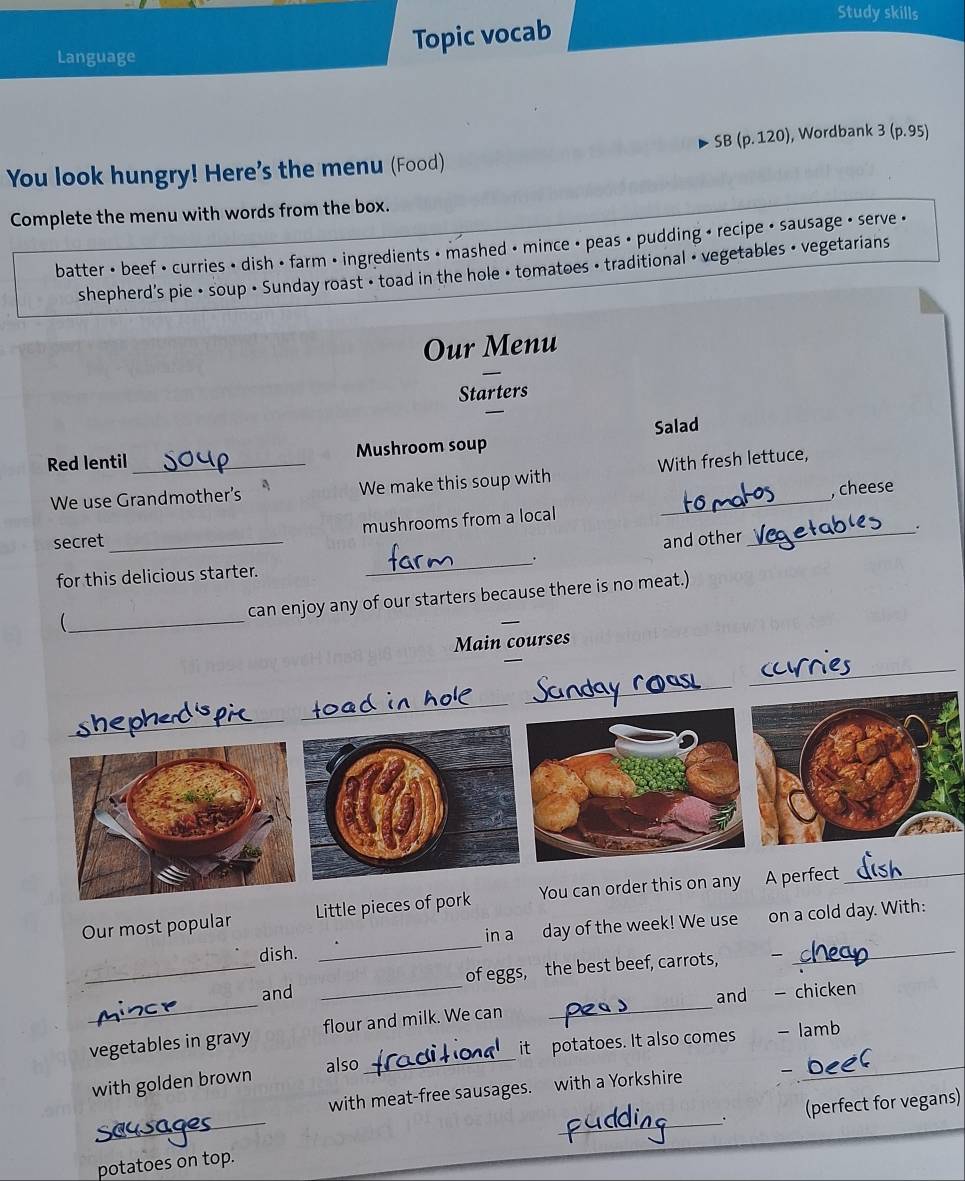 Study skills
Language
Topic vocab
▶ SB (p.120), Wordbank 3 (p.95)
You look hungry! Here's the menu (Food)
Complete the menu with words from the box.
batter • beef • curries • dish • farm • ingredients • mashed • mince • peas • pudding • recipe • sausage • serve •
shepherd's pie • soup • Sunday roast • toad in the hole • tomatoes • traditional • vegetables • vegetarians
Our Menu
Starters
Red lentil soup
We use Grandmother's
secret ____
for this delicious starter.
Mushroom soup
We make this soup with
mushrooms from a local
farm.
Salad
With fresh lettuce,
tomatos, cheese
and other vegetables.
(____ can enjoy any of our starters because there is no meat.)
Main courses
shepherd's pie
Our most popular
____ dish.
mince and
vegetables in gravy
with golden brown
sausages
potatoes on top.
toad in hole
Little pieces of pork
____ in a
____ of eggs,
flour and milk. We can
also traditional it
with meat-free sausages.
Sunday roast
You can order this on any
day of the week! We use
the best beef, carrots,
peas and
potatoes. It also comes
with a Yorkshire
pudding.
curries
A perfect dish
on a cold day. With:
– cheap
– chicken
– lamb
– beef
(perfect for vegans)